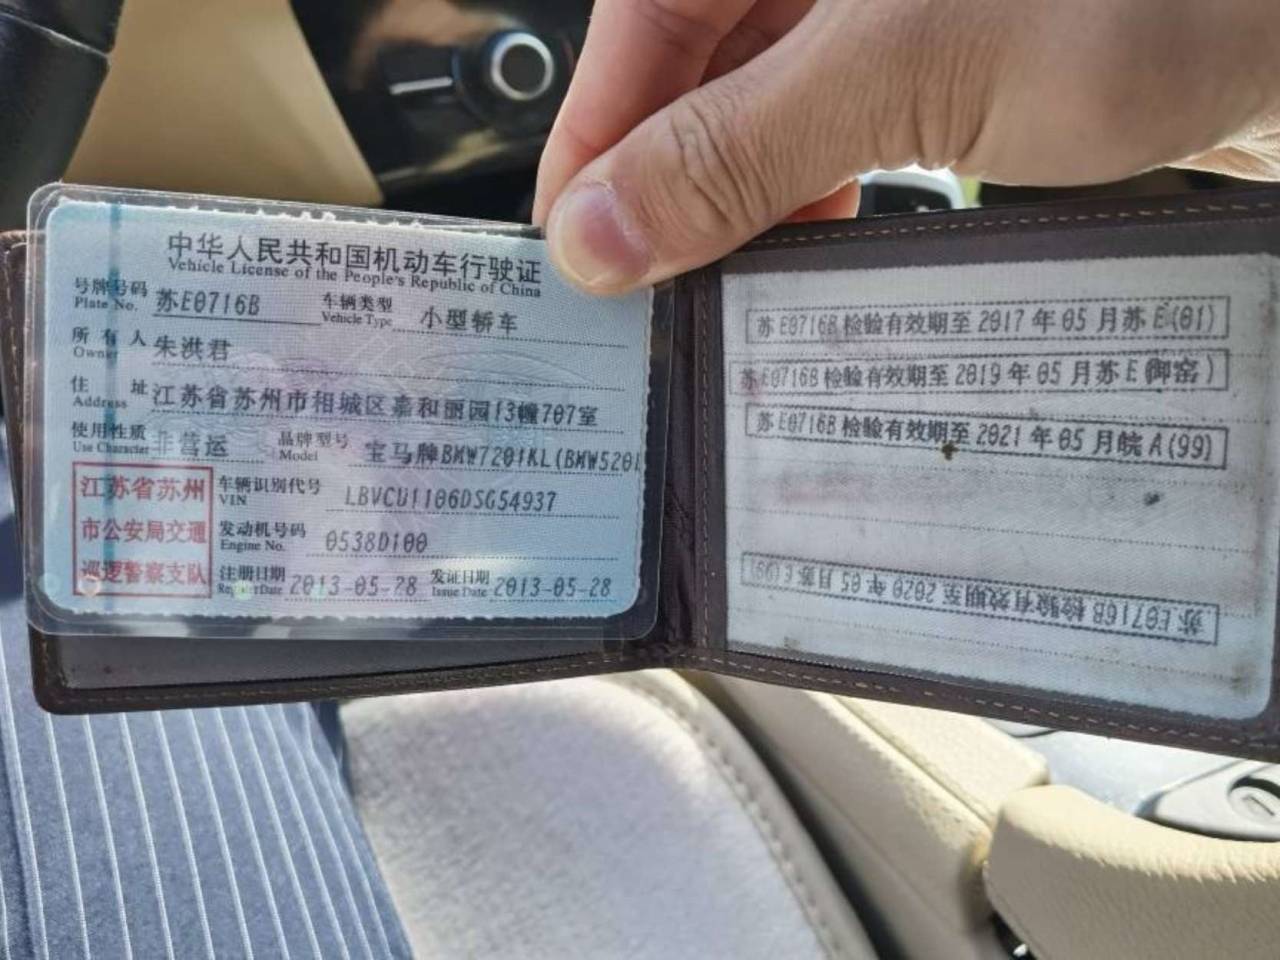 中华人民共和国机动车行驶证
Vehicle License of the People's Republic of China
号牌号码 苏E0716B 车辆类型 小型轿车
Plate No. Vehicle Type
所有人 朱洪君
Owner
住址 江苏省苏州市相城区嘉和丽园13幢707室
Address
使用性质 非营运 品牌型号 宝马牌BMW7201KL(BMW520I
Use Character Model
江苏省苏州
市公安局交通
巡逻警察支队
车辆识别代号 LBVCU1106DSG54937
VIN
发动机号码 0538D100
Engine No.
注册日期 2013-05-28 发证日期 2013-05-28
Register Date Issue Date
苏E0716B 检验有效期至 2017 年 05 月苏 E(01)
苏E0716B 检验有效期至 2019 年 05 月苏 E(御窑)
苏E0716B 检验有效期至 2021 年 05 月皖 A(99)
苏E0716B 检验有效期至 2020 年 05 月苏 E(99)